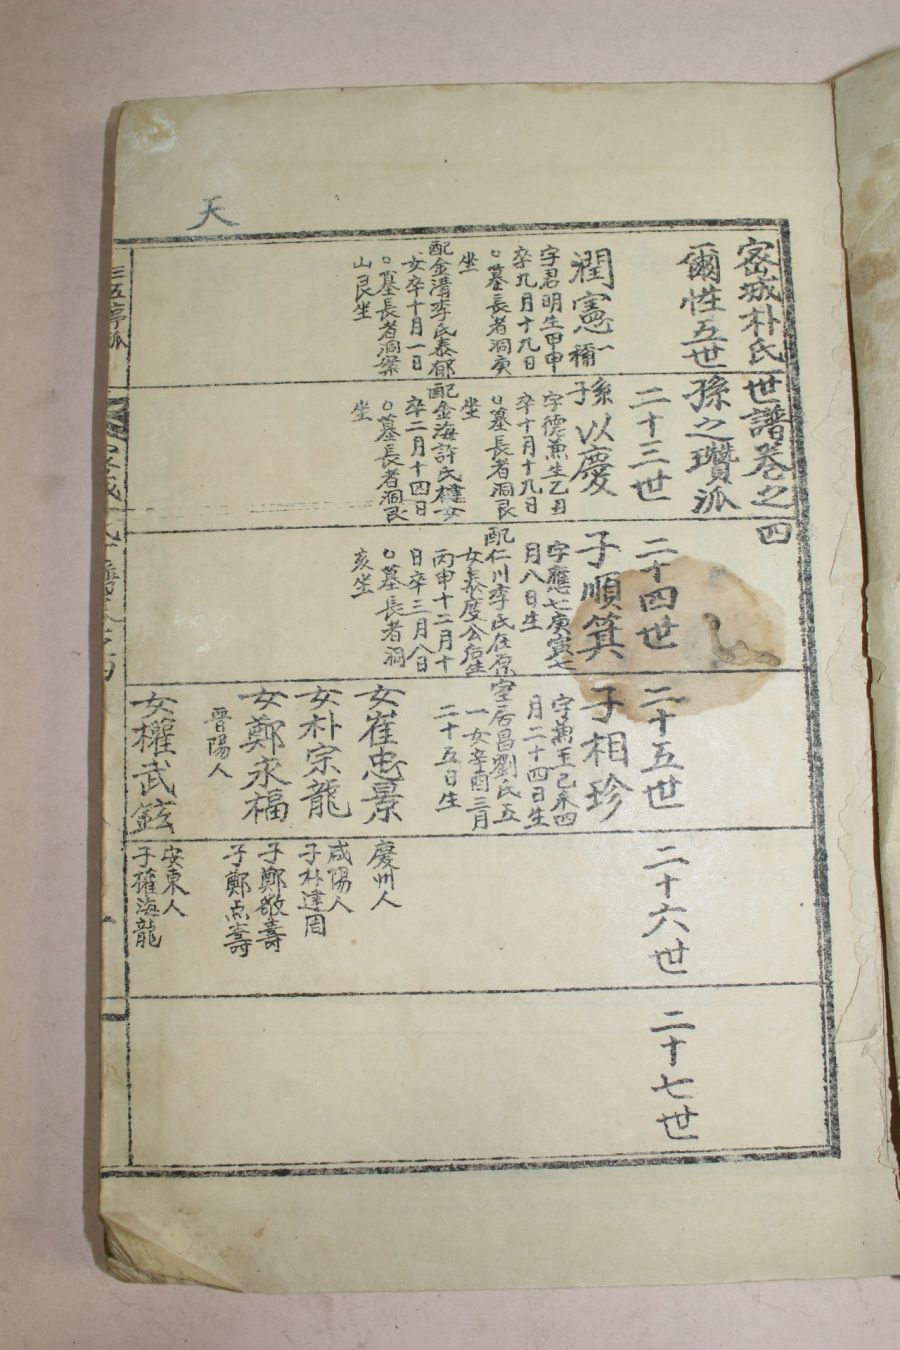 天
密城朴氏世譜卷之四
爾性五世孫之瓚派
二十三世
二十四世
二十五世
二十六世
二十七世
潤憲
一禰
字君明生甲申
卒九月十九日
墓長者洞庚
坐
配金溝李氏泰郁
女卒十月一日
墓長者洞案
山艮坐
孫以慶
字德兼生乙丑
卒十月十九日
墓長者洞艮
坐
配金海許氏橽女
卒二月十四日
墓長者洞艮
坐
子順箕
字應七庚寅七
月八日生
配仁川李氏在原
女養度公后生
丙申十二月十
日卒三月八日
墓長者洞
亥坐
子相珍
字萬玉己未四
月二十四日生
室居昌劉氏五
一女辛酉三月
二十五日生
女崔忠景
慶州人
女朴宗龍
咸陽人
子朴達周
女鄭永福
晋陽人
子鄭敬壽
子鄭点壽
女權武鉉
安東人
子權海龍
三五亭派